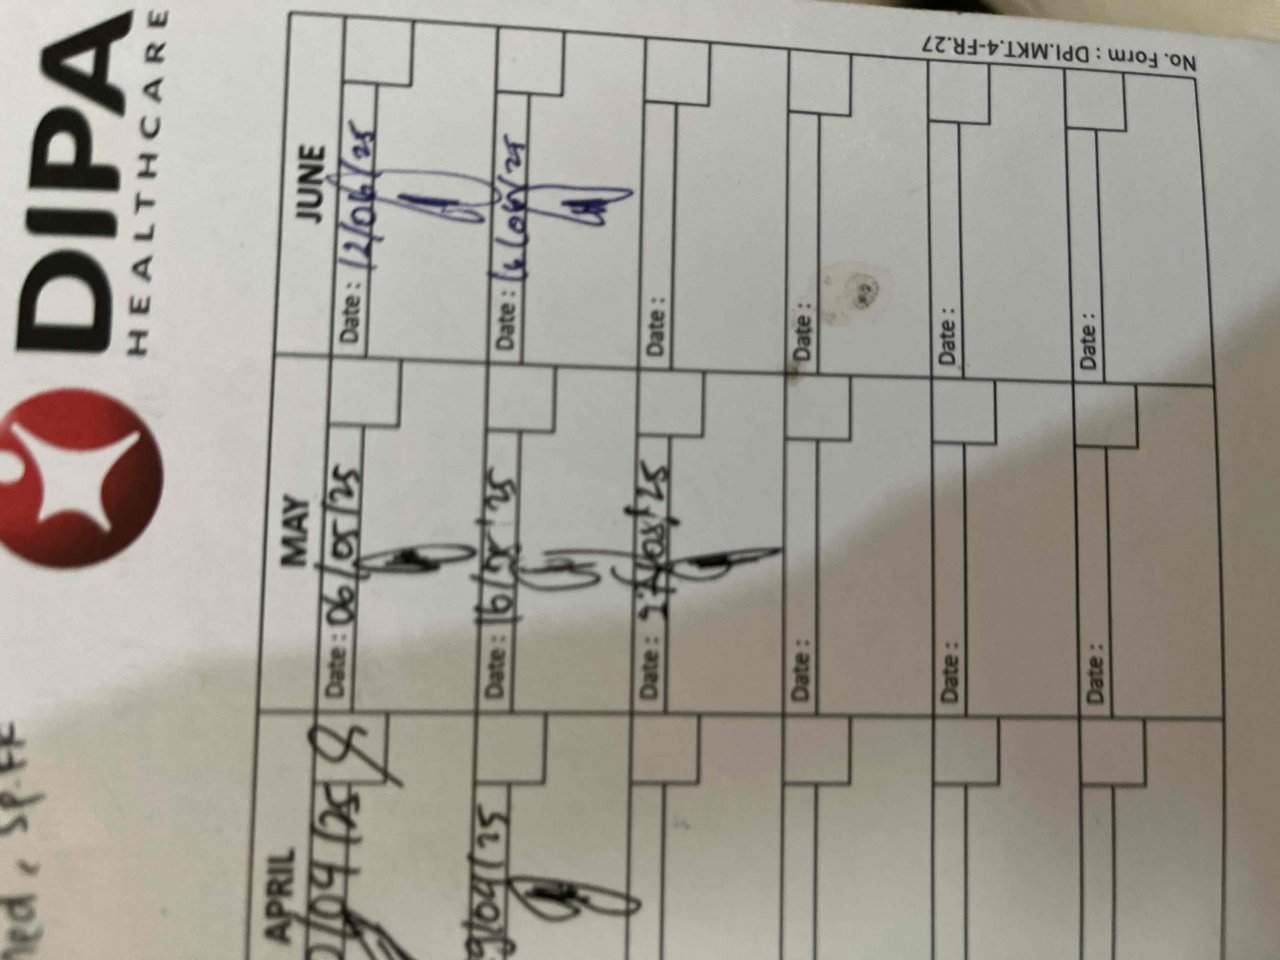 DIPA
HEALTHCARE
No. Form : DPI.MKT.4-FR.27
APRIL
MAY
JUNE
/04/25
Date : 06/05/25
Date : 12/06/25
9/04/25
Date : 16/05'25
Date : 16/06/25
Date :
Date :
Date :
Date :
Date :
Date :
Date :
Date :